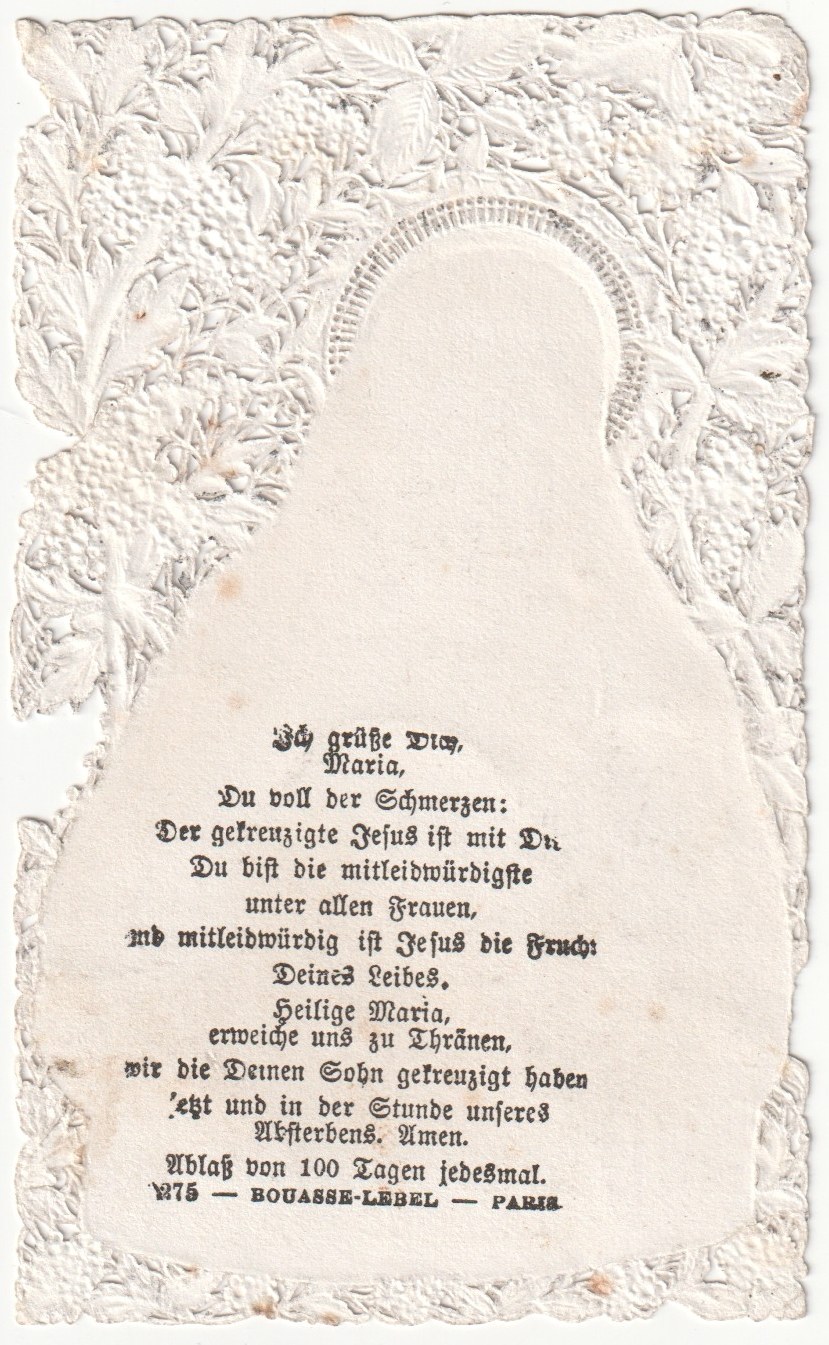 Ich grüße Dich,
Maria,
Du voll der Schmerzen:
Der gekreuzigte Jesus ist mit Dir
Du bist die mitleidwürdigste
unter allen Frauen,
und mitleidwürdig ist Jesus die Frucht
Deines Leibes.
Heilige Maria,
erweiche uns zu Thränen,
wir die Deinen Sohn gekreuzigt haben
jetzt und in der Stunde unseres
Absterbens. Amen.
Ablaß von 100 Tagen jedesmal.
— BOUASSE-LEBEL — PARIS